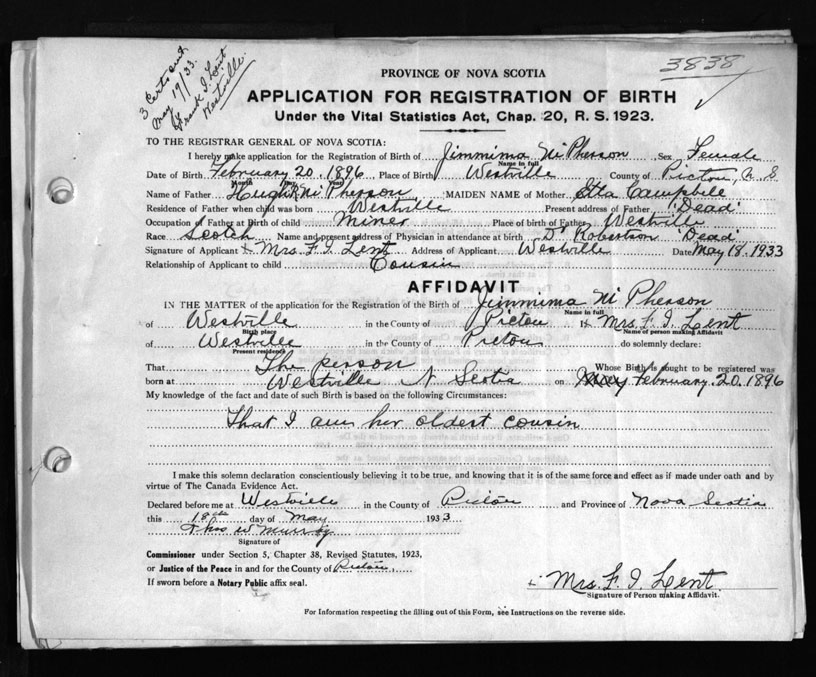 3 Certs sent
May 19/33.
Frank I. Lent
Westville.
3838
PROVINCE OF NOVA SCOTIA
APPLICATION FOR REGISTRATION OF BIRTH
Under the Vital Statistics Act, Chap. 20, R. S. 1923.
TO THE REGISTRAR GENERAL OF NOVA SCOTIA:
I hereby make application for the Registration of Birth of Jimmima McPherson Sex Female
Name in full
Date of Birth February 20. 1896 Place of Birth Westville County of Pictou, N. S
Month Day Year
Name of Father Hugh McPherson MAIDEN NAME of Mother Etta Campbell
Residence of Father when child was born Westville Present address of Father 'Dead'
Occupation of Father at Birth of child Miner Place of birth of Father Westville
Race Scotch Name and present address of Physician in attendance at birth Dr Robertson 'Dead'
Signature of Applicant Mrs. F. I. Lent Address of Applicant Westville Date May 18. 1933
Relationship of Applicant to child Cousin
AFFIDAVIT
IN THE MATTER of the application for the Registration of the Birth of Jimmima McPherson
Name in full
of Westville in the County of Pictou I, Mrs. F. I. Lent
Birth place Name of person making Affidavit
of Westville in the County of Pictou do solemnly declare:
Present residence
That The person Whose Birth is sought to be registered was
born at Westville N Scotia on May February. 20. 1896
My knowledge of the fact and date of such Birth is based on the following Circumstances:
That I am her oldest cousin
I make this solemn declaration conscientiously believing it to be true, and knowing that it is of the same force and effect as if made under oath and by
virtue of The Canada Evidence Act.
Declared before me at Westville in the County of Pictou and Province of Nova Scotia
this 18th day of May 1933
Thos W Murray
Signature of
Commissioner under Section 5, Chapter 38, Revised Statutes, 1923,
or Justice of the Peace in and for the County of Pictou
If sworn before a Notary Public affix seal.
Mrs. F. I. Lent.
Signature of Person making Affidavit.
For Information respecting the filling out of this Form, see Instructions on the reverse side.